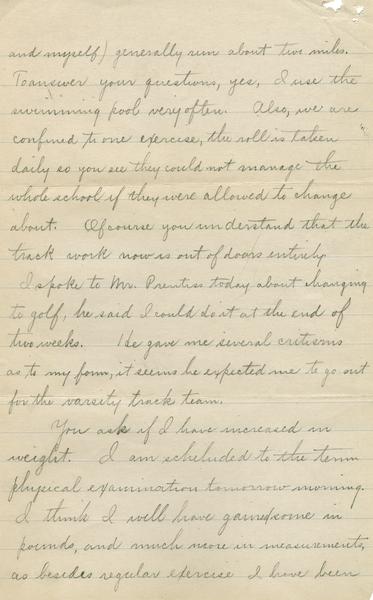 and myself) generally run about two miles.
To answer your questions, yes, I use the
swimming pool very often. Also, we are
confined to one exercise, the roll is taken
daily so you see they could not manage the
whole school if they were allowed to change
about. Of course you understand that the
track work now is out of doors entirely
I spoke to Mr. Prentiss today about changing
to golf, he said I could do it at the end of
two weeks. He gave me several critisms
as to my form, it seems he expected me to go out
for the varsity track team.
You ask if I have increased in
weight. I am scheluded to the term
physical examination tomorrow morning.
I think I will have gained some in
pounds, and much more in measurements,
as besides regular exercise I have been